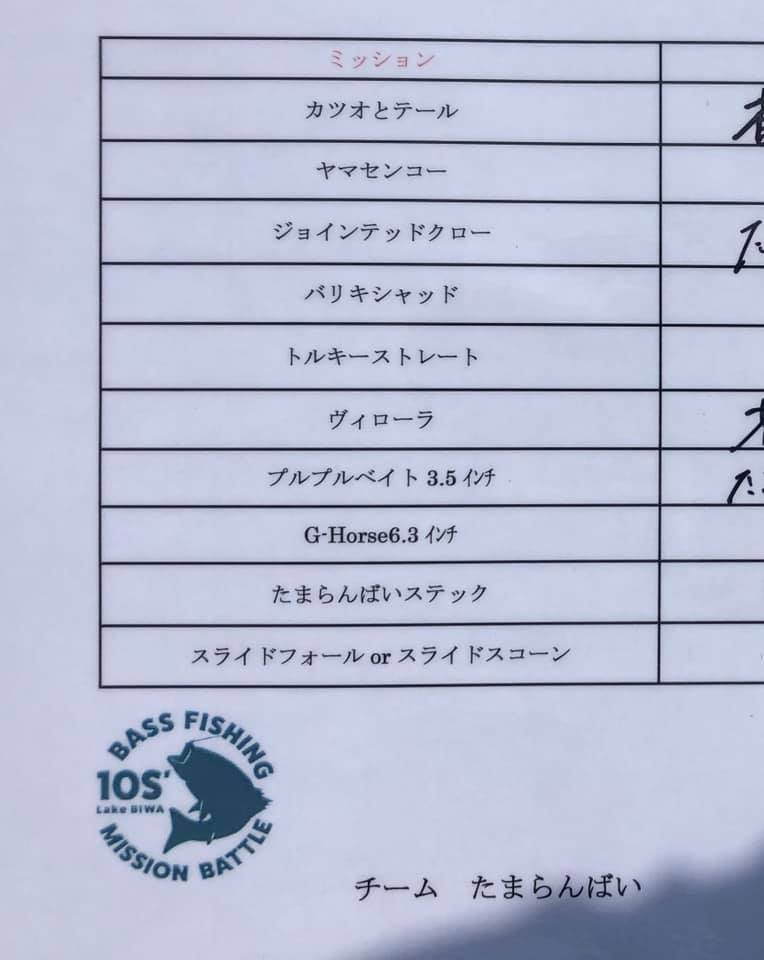 ミッション
カツオとテール
ヤマセンコー
ジョインテッドクロー
バリキシャッド
トルキーストレート
ヴィローラ
プルプルベイト 3.5 インチ
G-Horse6.3 インチ
たまらんばいステック
スライドフォール or スライドスコーン
BASS FISHING
10S'
Lake BIWA
MISSION BATTLE
チーム　たまらんばい